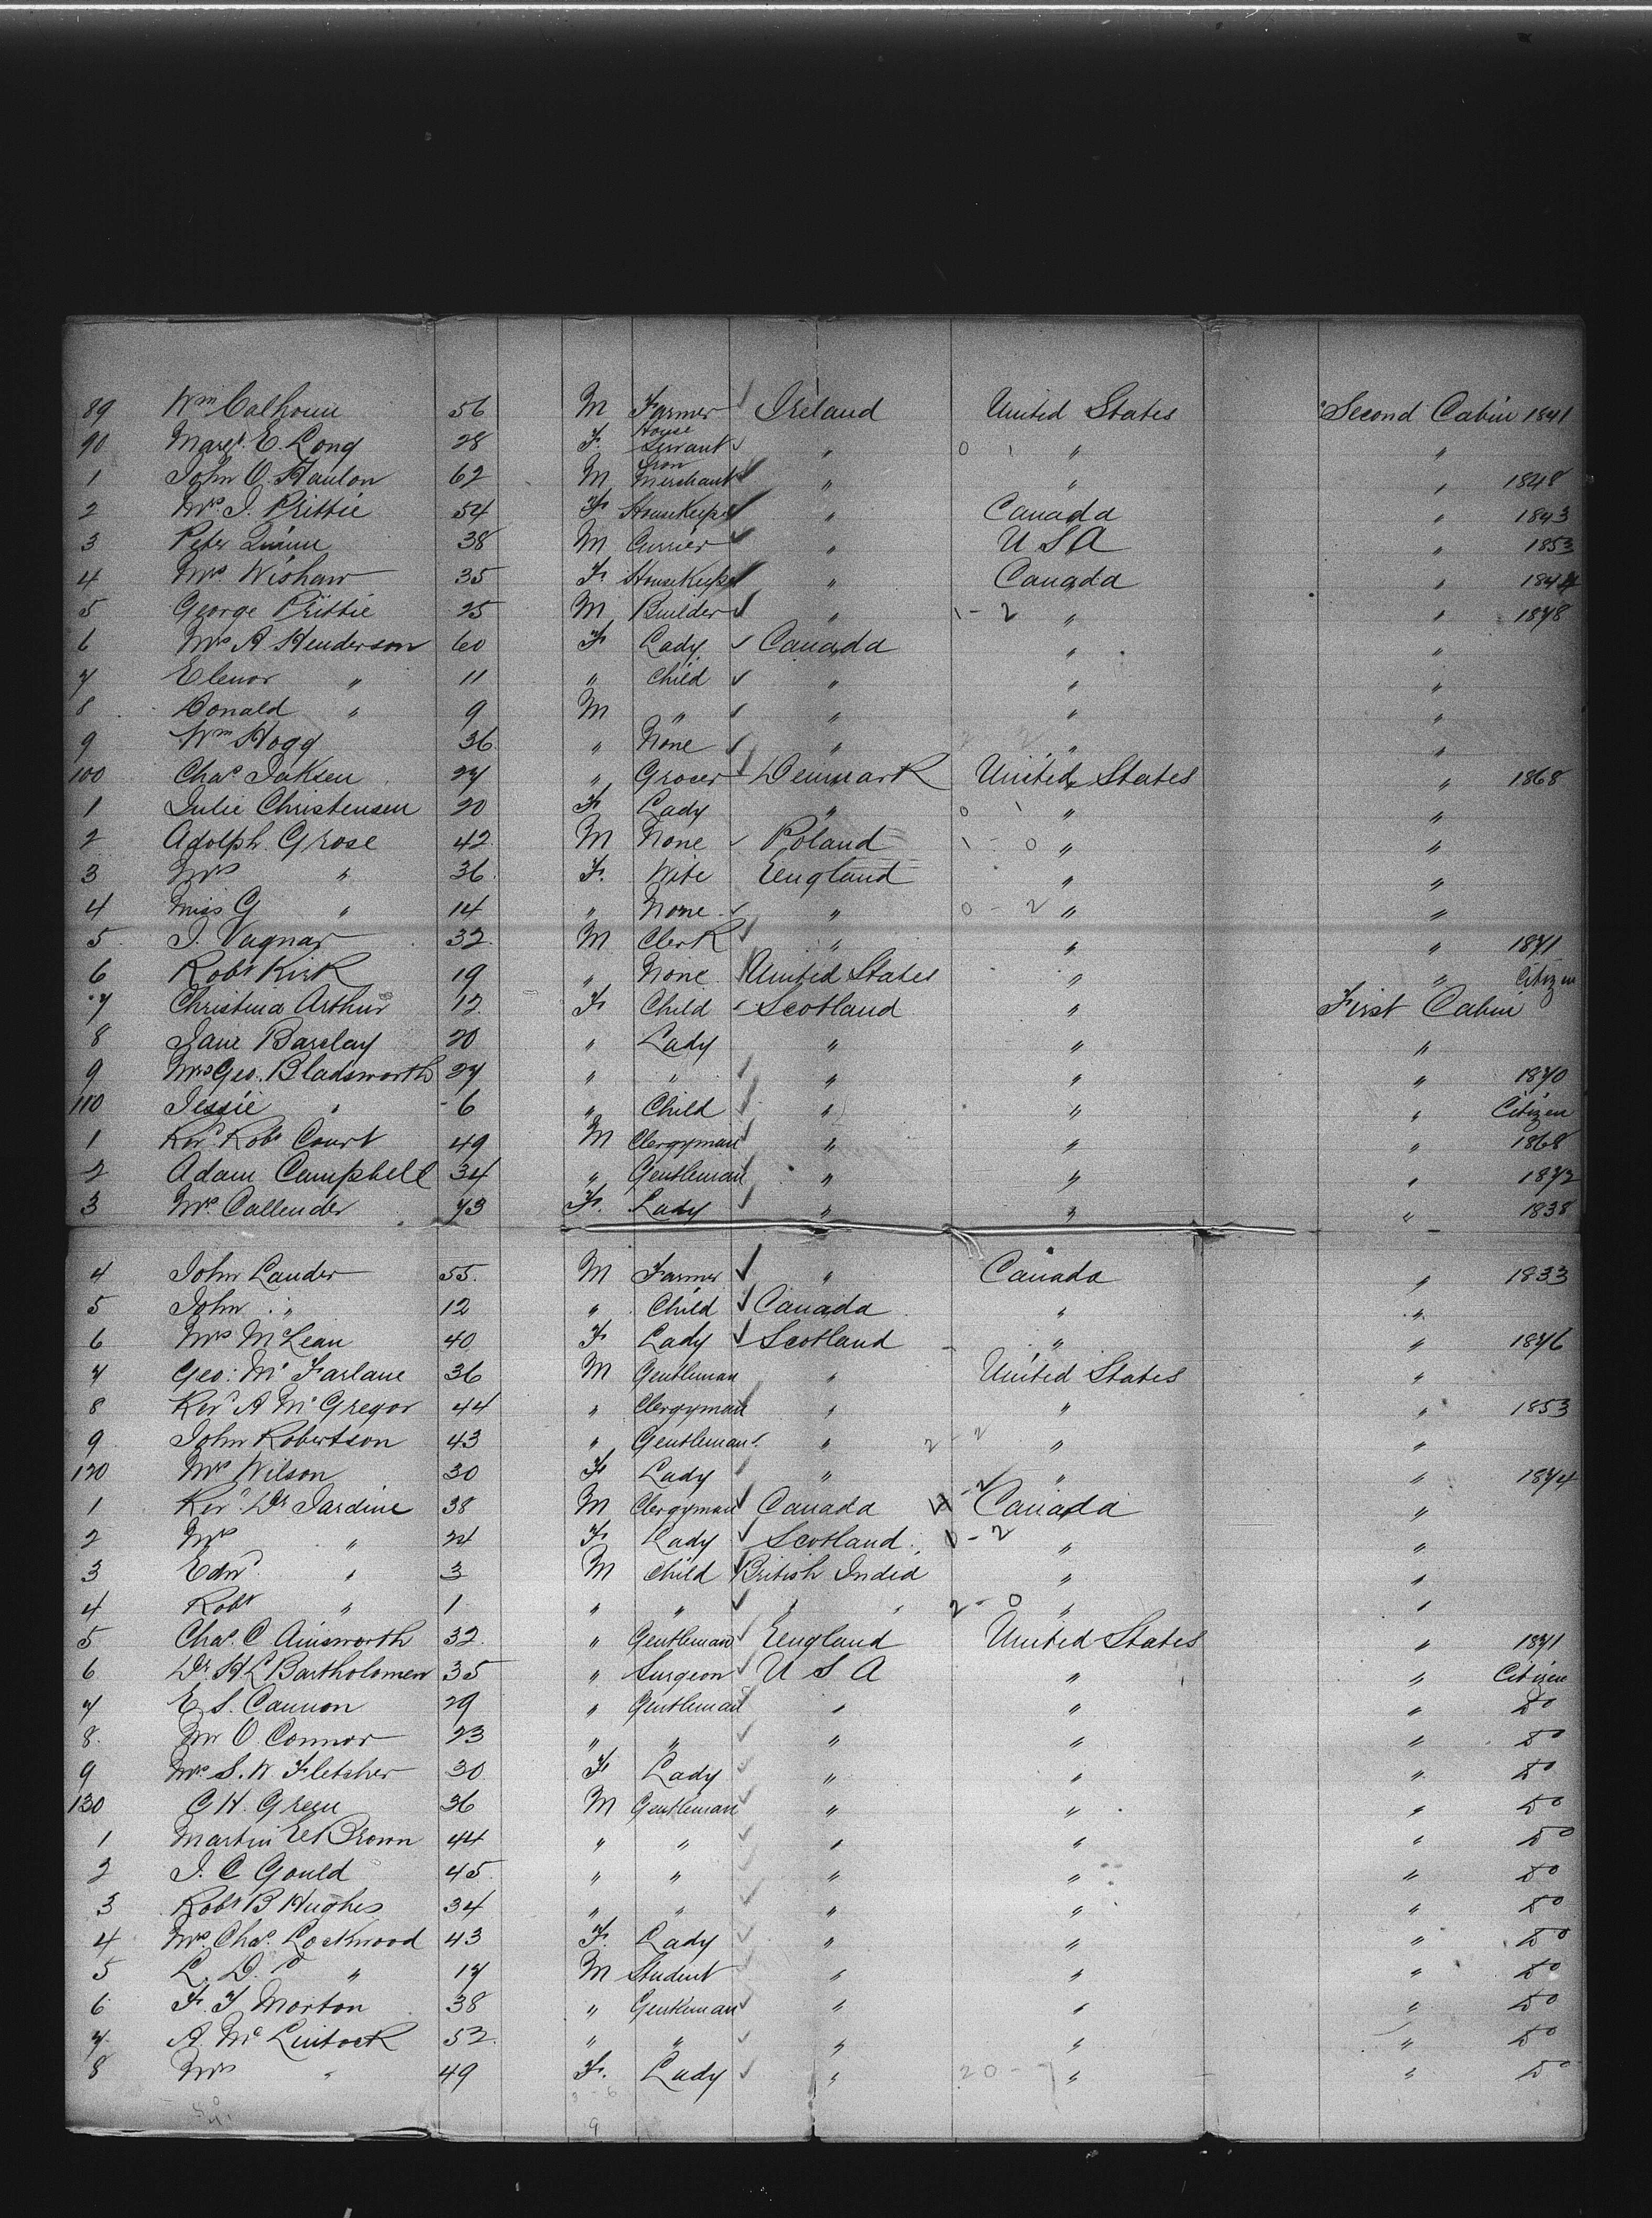 89 Wm Calhoun 56 M Farmer Ireland United States Second Cabin 1841
90 Margt. E. Long 28 F. House Servant " 0 1 " "
1 John O. Hanlon 62 M Iron Merchant " " " 1848
2 Mrs J. Prittie 54 F Housekeeper " Canada " 1843
3 Peter Quinn 38 M Currier " U S A " 1853
4 Mrs Wishaw 35 F Housekeeper " Canada " 1844
5 George Prittie 25 M Builder " 1-2 " " 1878
6 Mrs A Henderson 60 F Lady Canada " "
7 Elenor " 11 " Child " " "
8 Donald " 9 M " " " "
9 Wm Hogg 36 " None " " "
100 Chas Jaksen 27 " Grocer Denmark United States " 1868
1 Julie Christensen 20 F Lady " 0 1 " "
2 Adolph Grose 42 M None Poland 1-0 " "
3 Mrs " 36 F. Wife England " "
4 Miss G " 14 " None " 0-2 " "
5 J. Vagnar 32 M Clerk " " " 1871
6 Robt Kirk 19 " None United States " " Citizen
7 Christina Arthur 12 F Child Scotland " First Cabin
8 Jane Barclay 20 " Lady " " "
9 Mrs Geo. Bladsworth 27 " " " " " 1870
110 Jessie " 6 " Child " " " Citizen
1 Revd Robt Court 49 M Clergyman " " " 1868
2 Adam Campbell 34 " Gentleman " " " 1872
3 Mrs Callender 73 F. Lady " " " 1838
4 John Lauder 55 M Farmer " Canada " 1833
5 John " 12 " Child Canada " "
6 Mrs McLean 40 F Lady Scotland " " 1876
7 Geo: Mc Farlane 36 M Gentleman " United States "
8 Revd A McGregor 44 " Clergyman " " " 1853
9 John Robertson 43 " Gentleman " 2-2 " "
120 Mrs Wilson 30 F Lady " " " 1874
1 Revd Dr Jardine 38 M Clergyman Canada Canada "
2 Mrs " 24 F Lady Scotland 0-2 " "
3 Edwd " 3 M Child British India " "
4 Robt " 1 " " " " 2-0 " "
5 Chas. C Ainsworth 32 " Gentleman England United States " 1871
6 Dr H L Bartholomew 35 " Surgeon U S A " " Citizen
7 E S. Cannon 29 " Gentleman " " " Do
8 Mr O. Connor 23 " " " " " Do
9 Mrs S. W. Fletcher 30 F Lady " " " Do
130 C H. Green 36 M Gentleman " " " Do
1 Martin W Brown 44 " " " " " Do
2 J. C Gould 45 " " " " " Do
3 Robt B Hughes 34 " " " " " Do
4 Mrs Chas. Lockwood 43 F. Lady " " " Do
5 L. D. " 17 M Student " " " Do
6 F. T Morton 38 " Gentleman " " " Do
7 A. Mc Lintock 52 " " " " " Do
8 Mrs " 49 F. Lady " 20-7 " " Do
3-6
9